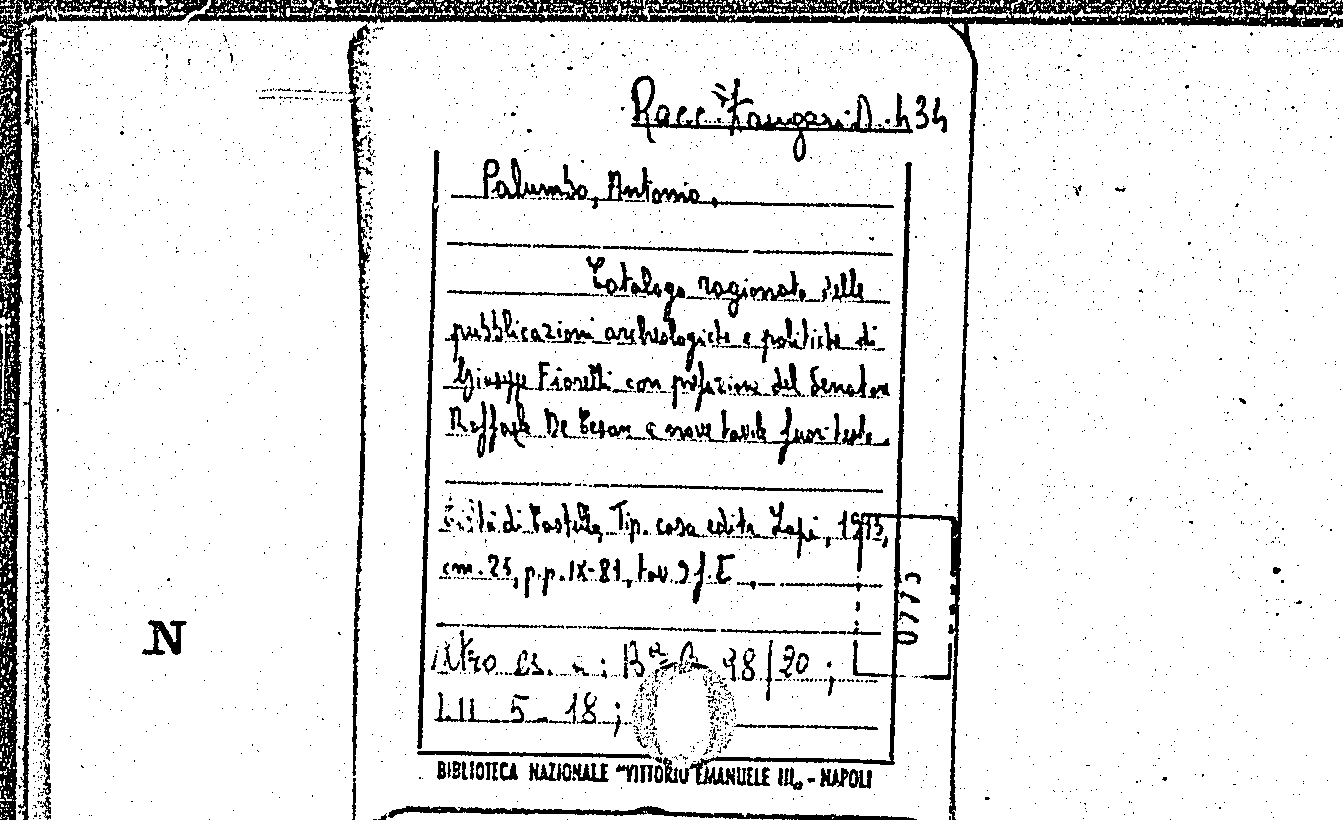 Racc. D. 434
Palumbo, Antonio,
Catalogo ragionato delle
pubblicazioni archeologiche e politiche di
Giuseppe Fiorelli con prefazione del Senatore
Raffaele De Cesare e nove tavole fuori testo.
Città di Castello, Tip. casa editr. Lapi, 1913,
cm. 25, p.p. IX-81, tav. 9 f. T.
0773
N
Altro es. a: Bª 98/20;
LII 5-18;
BIBLIOTECA NAZIONALE "VITTORIO EMANUELE III„ - NAPOLI